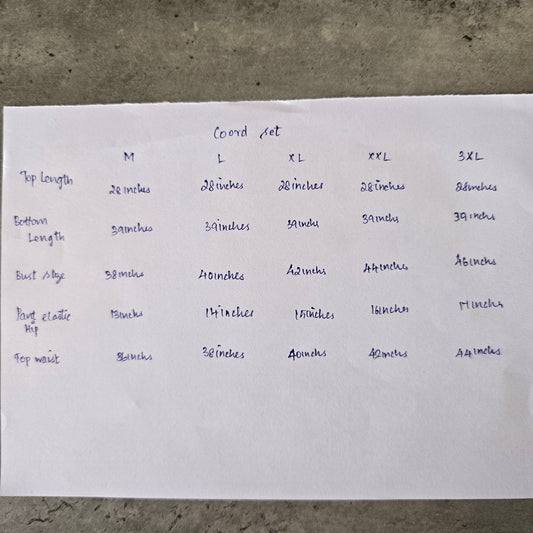 Coord set
M L XL XXL 3XL
Top Length 28 inches 28 inches 28 inches 28 inches 28 inches
Bottom
Length 39 inches 39 inches 39 inchs 39 inchs 39 inchs
Bust size 38 inchs 40 inches 42 inchs 44 inchs 46 inchs
Pant elastic 13 inchs 14 inches 15 inches 16 inchs 17 inchs
Hip
Top waist 36 inchs 38 inches 40 inchs 42 inchs 44 inchs